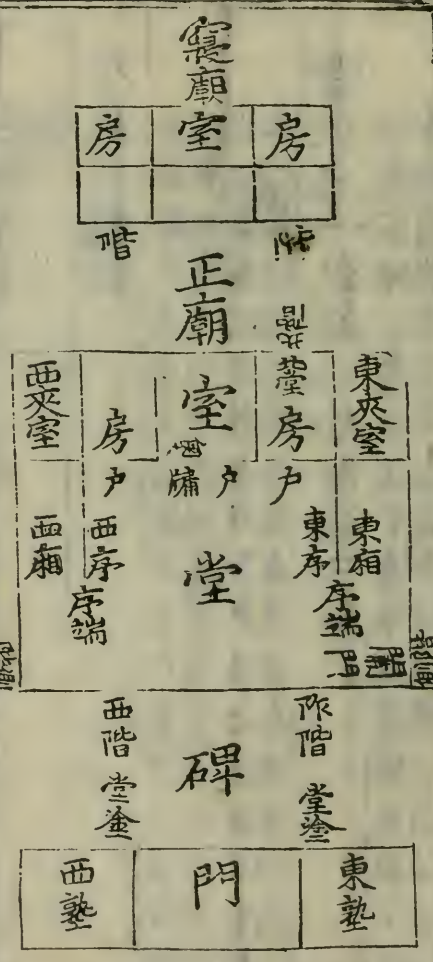 寢廟
房 室 房
階 階
正廟
北階
西夾室 房 室 房 北堂 東夾室
戶 牖 戶 戶
西廂 西序 堂 東序 東廂
序端 序端
闈門
側階
西階 堂塗 碑 阼階 堂塗
西塾 門 東塾